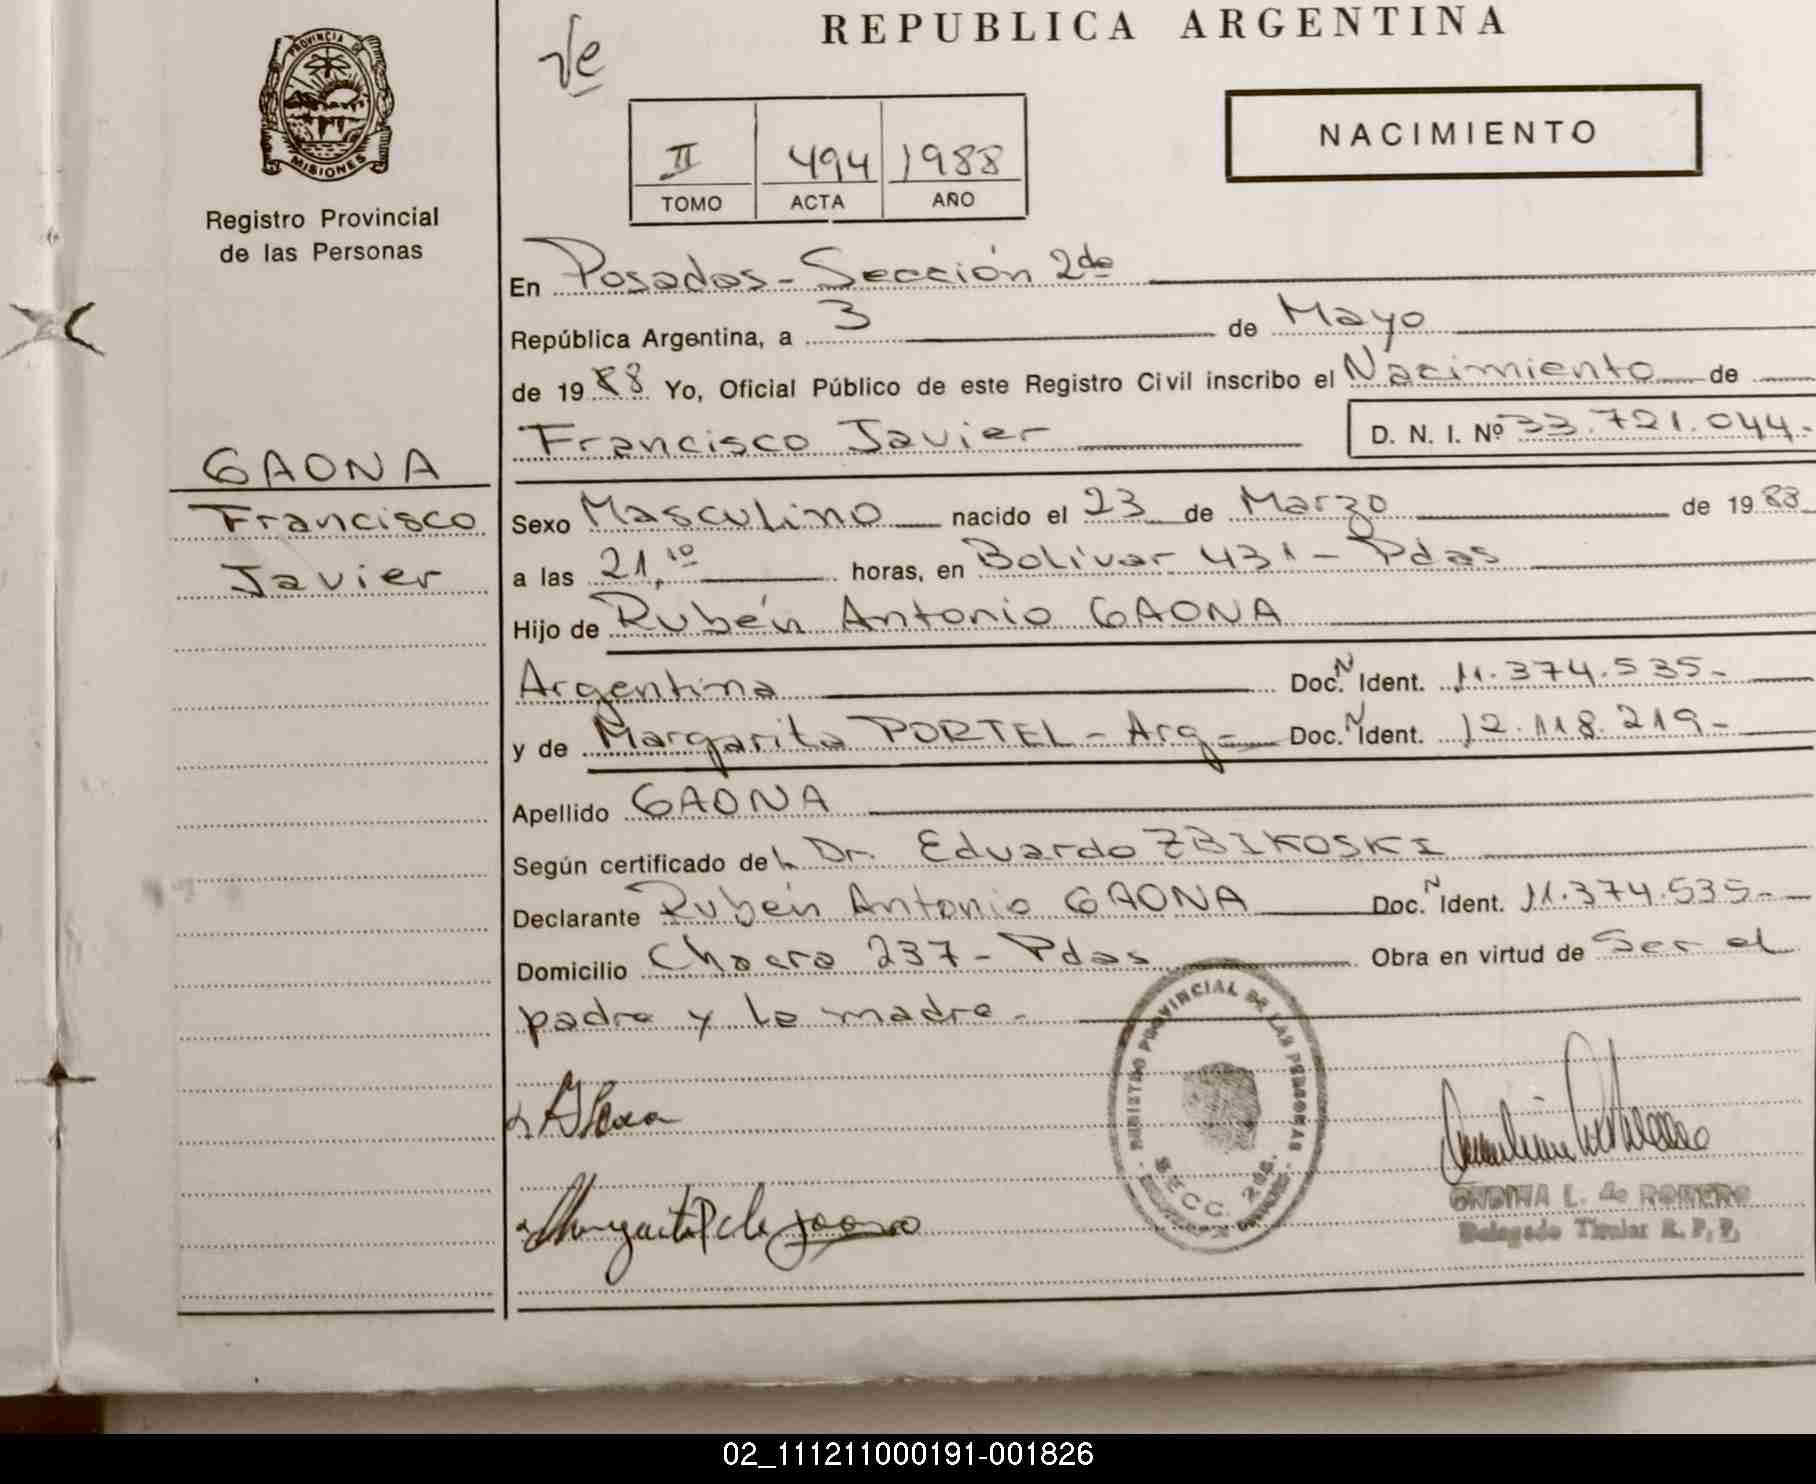 PROVINCIA DE
MISIONES
Registro Provincial
de las Personas
GAONA
Francisco
Javier
REPUBLICA ARGENTINA
NACIMIENTO
II 494 1988
TOMO ACTA AÑO
En Posadas - Sección 2da
República Argentina, a 3 de Mayo
de 1988 Yo, Oficial Público de este Registro Civil inscribo el Nacimiento de
Francisco Javier D. N. I. Nº 33.721.044.-
Sexo Masculino nacido el 23 de Marzo de 1988
a las 21,10 horas, en Bolívar 431 - Pdas
Hijo de Rubén Antonio GAONA
Argentina Doc. N Ident. 11.374.535-
y de Margarita PORTEL - Arg - Doc. N Ident. 12.118.219-
Apellido GAONA
Según certificado del Dr. Eduardo ZBIKOSKI
Declarante Rubén Antonio GAONA Doc. N Ident. 11.374.535-
Domicilio Chacra 237 - Pdas Obra en virtud de Ser el
padre y la madre.
REGISTRO PROVINCIAL DE LAS PERSONAS
SECC. 2da.
Margarita P de Gaona
ONDINA L. de ROMERO
Delegado Titular R. P. P.
02_111211000191-001826